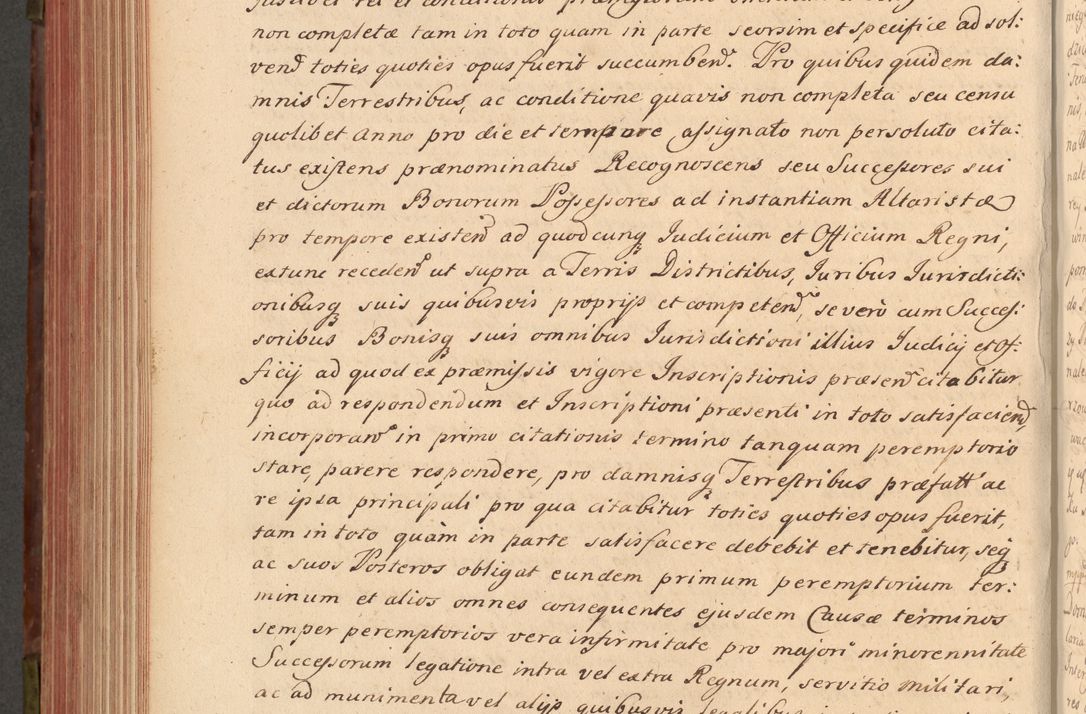 non completæ tam in toto quam in parte seorsim et specifice ad sol:
vend toties quoties opus fuerit succumbend. Pro quibus quidem da:
mnis Terrestribus, ac conditione quavis non completa seu censu
quolibet Anno pro die et tempore, assignato non persoluto cita:
tus existens prænominatus Recognoscens seu Successores sui
et dictorum Bonorum Possessores ad instantiam Altaristæ
pro tempore existend ad quodcunq Judicium et Officium Regni,
extunc recedend ut supra a Terris Districtibus, Juribus Jurisdicti:
onibusq suis quibusvis proprijs et competend, se verò cum Succes:
soribus Bonisq suis omnibus Jurisdictioni illius Judicij et Of:
ficij ad quod ex præmissis vigore Inscriptionis præsend citabitur
quo ad respondendum et Inscriptioni præsenti in toto satisfaciend,
incorporand in primo citationis termino tanquam peremptorio
stare, parere respondere, pro damnisq Terrestribus præfatt ac
re ipsa principali pro qua citabitur toties quoties opus fuerit,
tam in toto quàm in parte satisfacere debebit et tenebitur, seq
ac suos Posteros obligat eundem primum peremptorium ter:
minum et alios omnes consequentes ejusdem Causæ terminos
semper peremptorios vera infirmitate pro majori minorennitate
Successorum legatione intra vel extra Regnum, servitio militari,
ac ad munimenta vel alijs quibusvis legalibus